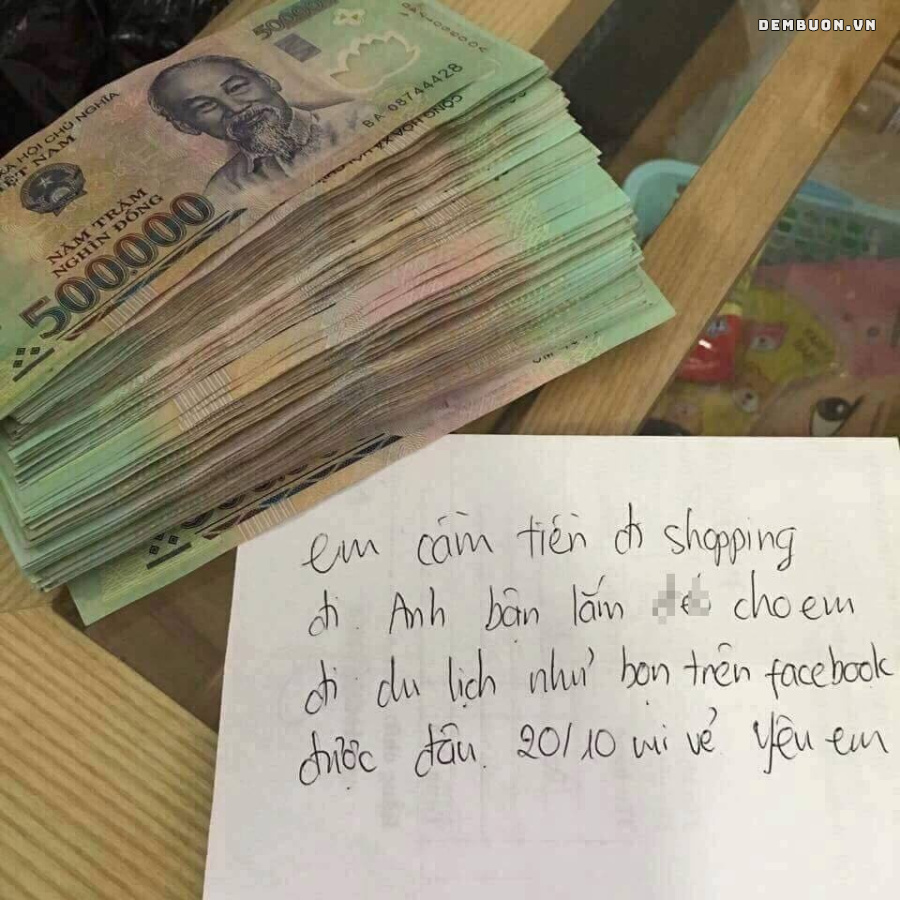 DEMBUON.VN
500000
BA 08744428
XÃ HỘI CHỦ NGHĨA
VIỆT NAM
NĂM TRĂM
NGHÌN ĐỒNG
500000
em cầm tiền đi shopping
đi. Anh bận lắm cho em
đi du lịch như bọn trên facebook
được đâu. 20/10 vui vẻ yêu em